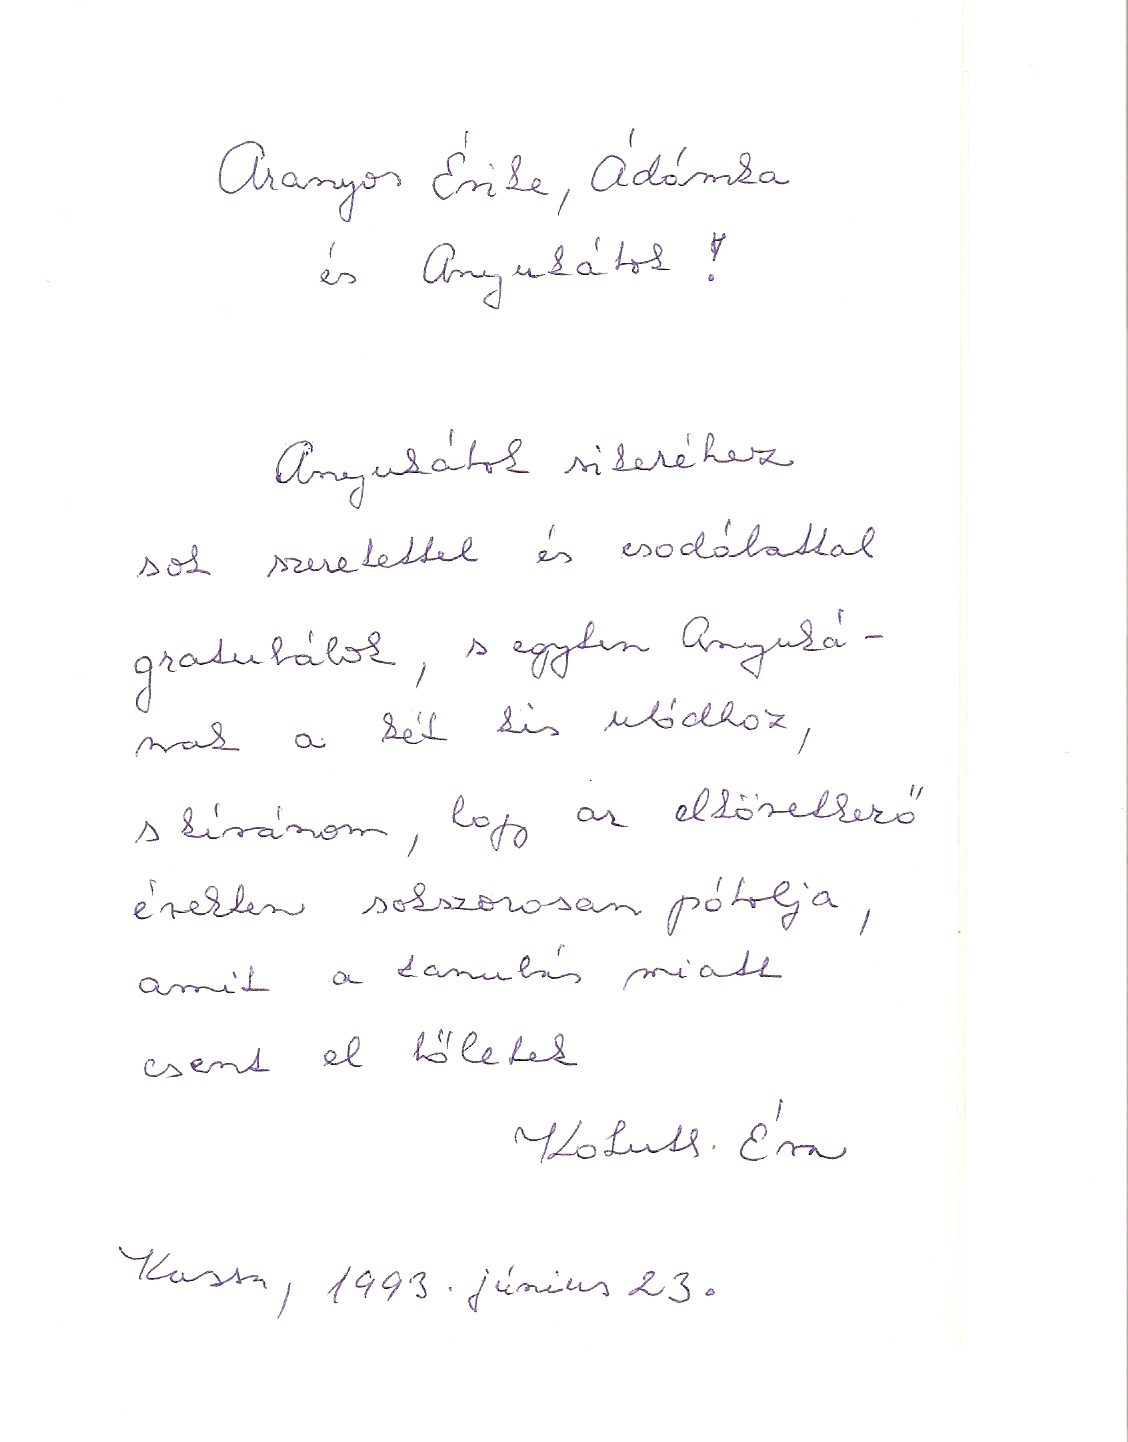 Aranyos Érike, Ádámka
és Anyukátok!
Anyukátok sikeréhez
sok szeretettel és csodálattal
gratulálok, s egyben Anyuká-
nak a két kis utódhoz,
s kívánom, hogy az elkövetkező
években sokszorosan pótolja,
amit a tanulás miatt
csent el tőletek
Éva
Kassa, 1993. június 23.